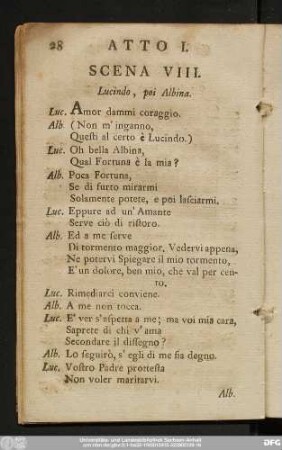 28 ATTO I.
SCENA VIII.
Lucindo, poi Albina.
Luc. Amor dammi coraggio.
Alb. (Non m'inganno,
Questi al certo è Lucindo.)
Luc. Oh bella Albina,
Qual Fortuna è la mia?
Alb. Poca Fortuna,
Se di furto mirarmi
Solamente potete, e poi lasciarmi.
Luc. Eppure ad un' Amante
Serve ciò di ristoro.
Alb. Ed a me serve
Di tormento maggior. Vedervi appena,
Ne potervi Spiegare il mio tormento,
E' un dolore, ben mio, che val per cen-
to.
Luc. Rimediarci conviene.
Alb. A me non tocca.
Luc. E' ver s'aspetta a me; ma voi mia cara,
Saprete di chi v'ama
Secondare il dissegno?
Alb. Lo seguirò, s' egli di me sia degno.
Luc. Vostro Padre protesta
Non voler maritarvi.
Alb.
Universitäts- und Landesbibliothek Sachsen-Anhalt
DFG